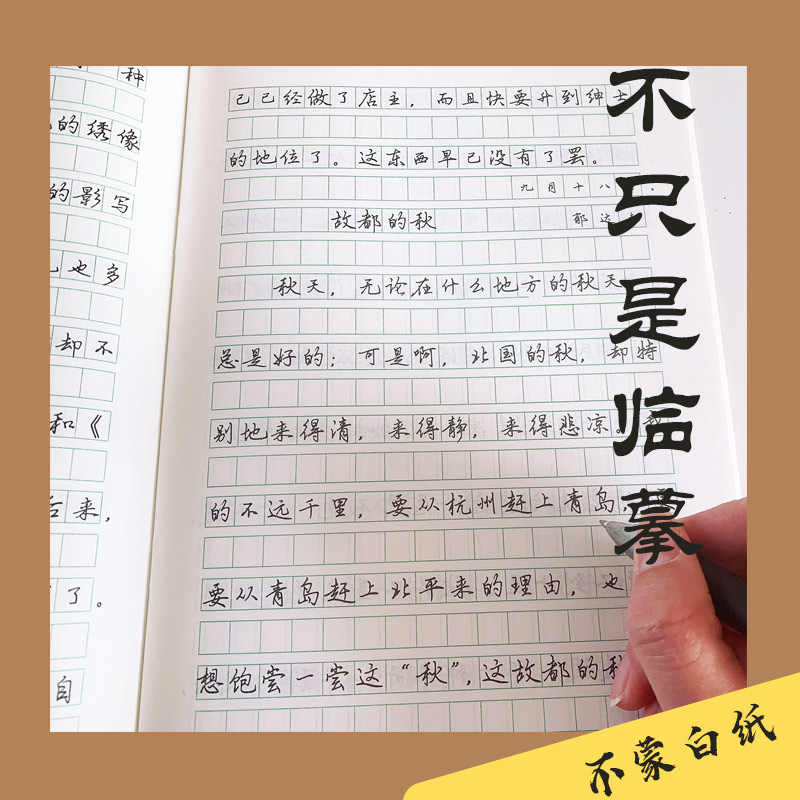 种
的绣像
的影写
也多
却不
和《
后来，
了。
自
己已经做了店主，而且快要升到绅士
的地位了。这东西早已没有了罢。
九月十八
故都的秋
郁达
秋天，无论在什么地方的秋天
总是好的；可是啊，北国的秋，却特
别地来得清，来得静，来得悲凉。
的不远千里，要从杭州赶上青岛，
要从青岛赶上北平来的理由，也
想饱尝一尝这“秋”，这故都的秋
不只是临摹
不蒙白纸